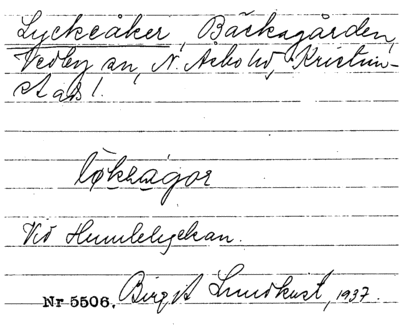 Lyckeåker, Bäcksgården,
Vedby sn, N. Åsbo hd, Kristian-
stads l.
løkragor
Vid Humlelyckan.
Nr 5506. Birgit Lundkvist, 1937.